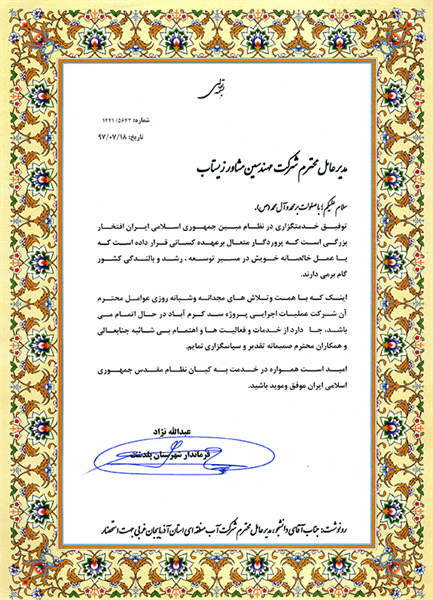 بسمه تعالی
شماره: ۱۴۴۱/۵۶۴۳
تاریخ: ۹۷/۰۷/۱۸
مدیر عامل محترم شرکت مهندسین مشاور زیستاب
سلام علیکم؛ با صلوات بر محمد و آل محمد (ص)،
توفیق خدمتگزاری در نظام مبین جمهوری اسلامی ایران افتخار
بزرگی است که پروردگار متعال برعهده کسانی قرار داده است که
با عمل خالصانه خویش در مسیر توسعه ، رشد و بالندگی کشور
گام برمی دارند.
اینک که با همت وتلاش های مجدانه وشبانه روزی عوامل محترم
آن شرکت عملیات اجرایی پروژه سد کرم آباد در حال اتمام می
باشد، جا دارد از خدمات و فعالیت ها و اهتمام بی شائبه جنابعالی
و همکاران محترم صمیمانه تقدیر و سپاسگزاری نمایم.
امید است همواره در خدمت به کیان نظام مقدس جمهوری
اسلامی ایران موفق وموید باشید.
عبدالله نژاد
فرماندار شهرستان پلدشت
رونوشت: جناب آقای دانشجو، مدیر عامل محترم شرکت آب منطقه ای استان آذربایجان غربی جهت استحضار